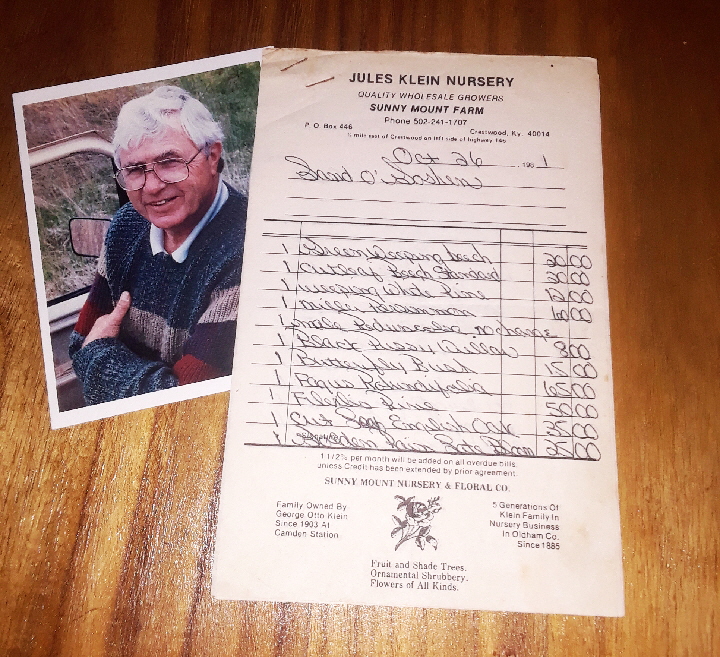 JULES KLEIN NURSERY
QUALITY WHOLESALE GROWERS
SUNNY MOUNT FARM
Phone 502-241-1707
P. O. Box 446 Crestwood, Ky. 40014
mile east of Crestwood on left side of highway 146
Oct 26 198 1
O'Goshen
1 Green Weeping beech 30 00
1 Cutleaf Beech Standard 30 00
1 weeping White Pine 00
1 00
1 no charge
1 Black Pussy Willow 8 00
1 Butterfly Bush 15 00
1 Fagus Rotundifolia 65 00
1 Pine 50 00
1 Cut Leaf English Oak 35 00
1 25 00
1 1/2% per month will be added on all overdue bills.
unless Credit has been extended by prior agreement.
SUNNY MOUNT NURSERY & FLORAL CO.
Family Owned By
George Otto Klein
Since 1903 At
Camden Station.
5 Generations Of
Klein Family In
Nursery Business
In Oldham Co.
Since 1885
Fruit and Shade Trees.
Ornamental Shrubbery.
Flowers of All Kinds.